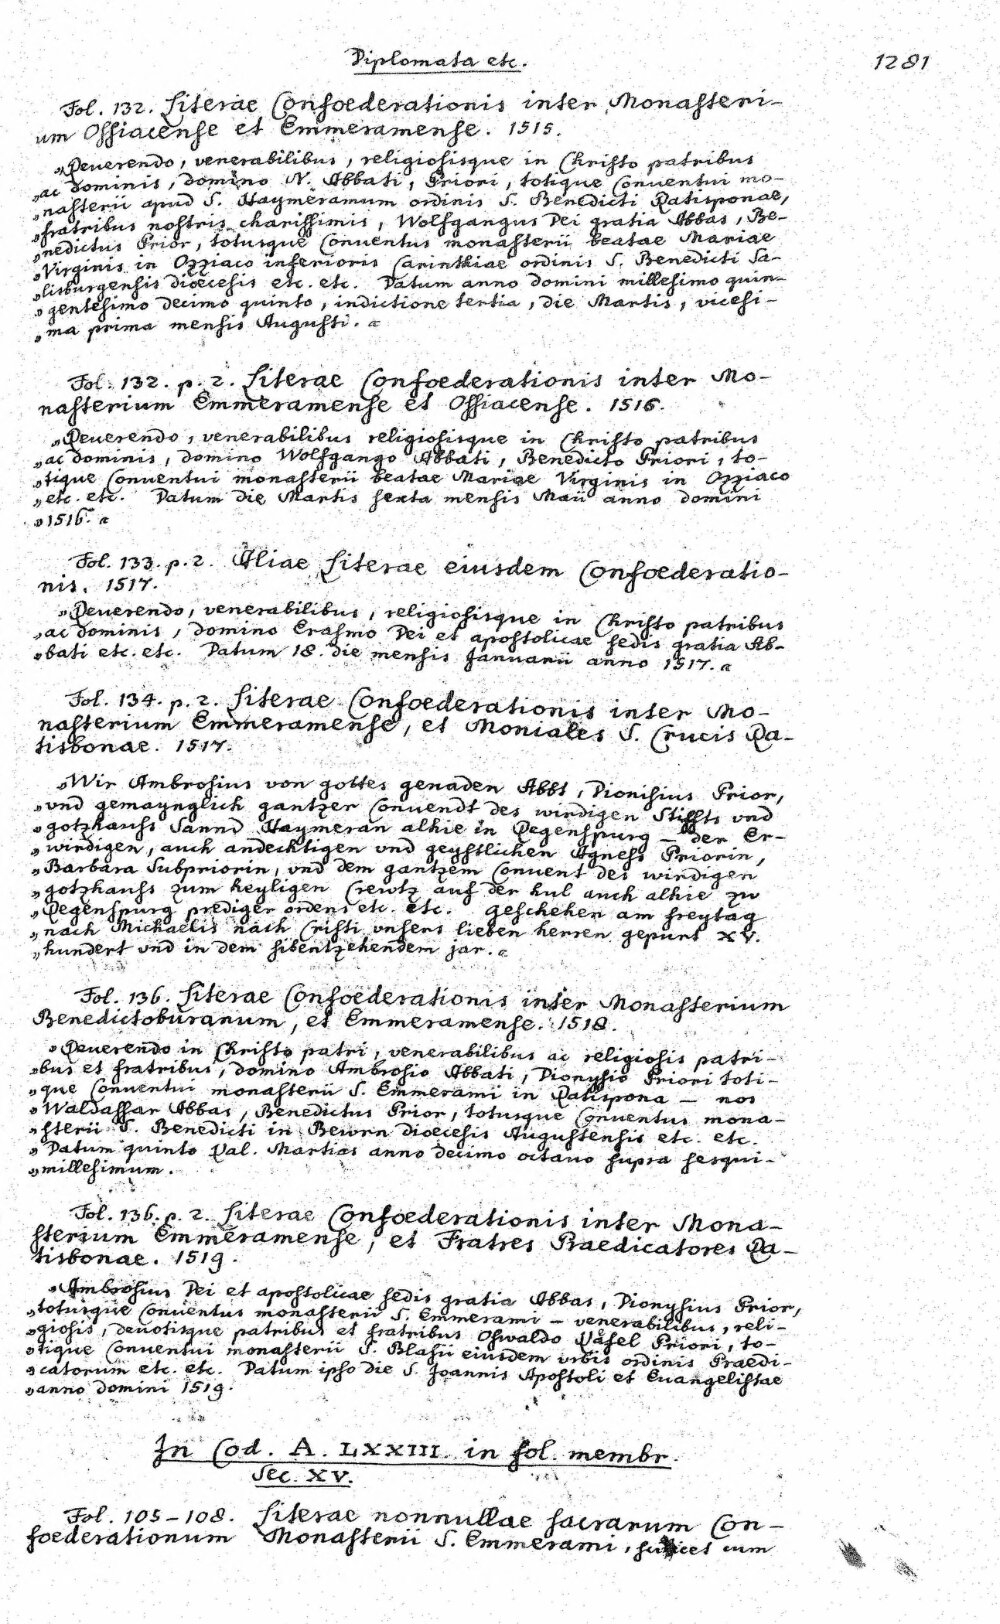 Diplomata etc.
1281
Fol. 132. Literae Confoederationis inter Monasteri-
um Ossiacense et Emmeramense. 1515.
„Reuerendo, venerabilibus, religiosisque in Christo patribus
„ac dominis, domino N. Abbati, Priori, totique Conuentui mo-
„nasterii apud S. Haymeramum ordinis S. Benedicti Ratisponae,
„fratribus nostris charissimis, Wolfgangus Dei gratia Abbas, Be-
„nedictus Prior, totusque Conuentus monasterii beatae Mariae
„Virginis in Ozziaco inferioris Carinthiae ordinis S. Benedicti Sa-
„litburgensis dioecesis etc. etc. Datum anno domini millesimo quin-
„gentesimo decimo quinto, indictione tertia, die Martis, vicesi-
„ma prima mensis Augusti. “
Fol. 132. p. 2. Literae Confoederationis inter Mo-
nasterium Emmeramense et Ossiacense. 1516.
„Reuerendo, venerabilibus religiosisque in Christo patribus
„ac dominis, domino Wolfgango Abbati, Benedicto Priori, to-
„tique Conuentui monasterii beatae Mariae Virginis in Ozziaco
„etc. etc. Datum die Martis sexta mensis Maii anno domini
„1516. “
Fol. 133. p. 2. Aliae Literae eiusdem Confoederatio-
nis. 1517.
„Reuerendo, venerabilibus, religiosisque in Christo patribus
„ac dominis, domino Erasmo Dei et apostolicae sedis gratia Ab-
„bati etc. etc. Datum 18. die mensis Januarii anno 1517. “
Fol. 134. p. 2. Literae Confoederationis inter Mo-
nasterium Emmeramense, et Moniales S. Crucis Ra-
tisbonae. 1517.
„Wir Ambrosius von gottes genaden Abbt, Dionisius Prior,
„vnd gemaynglich gantzer Conuendt des wirdigen Stiffts vnd
„gotzhauss Sannd Haymeran alhie in Regenspurg — der Er-
„wirdigen, auch andechtigen vnd geystlichen Agness Priorin,
„Barbara Subpriorin, vnd dem gantzem Conuent des wirdigen
„gotzhauss zum heyligen Creutz auf der hul auch alhie zw
„Regenspurg prediger ordens etc. etc. geschehen am freytag
„nach Michaelis nach Cristi vnsers lieben herren gepurt XV.
„hundert vnd in dem sibentzehendem jar. “
Fol. 136. Literae Confoederationis inter Monasterium
Benedictoburanum, et Emmeramense. 1518.
„Reuerendo in Christo patri, venerabilibus ac religiosis patri-
„bus et fratribus, domino Ambrosio Abbati, Dionysio Priori toti-
„que Conuentui monasterii S. Emmerami in Ratispona — nos
„Waldassar Abbas, Benedictus Prior, totusque Conuentus mona-
„sterii S. Benedicti in Bewrn dioecesis Augustensis etc. etc.
„Datum quinto Kal. Martias anno decimo octauo supra sesqui-
„millesimum.
Fol. 136. p. 2. Literae Confoederationis inter Mona-
sterium Emmeramense, et Fratres Praedicatores Ra-
tisbonae. 1519.
„Ambrosius Dei et apostolicae sedis gratia Abbas, Dionysius Prior,
„totusque Conuentus monasterii S. Emmerami — venerabilibus, reli-
„giosis, deuotisque patribus et fratribus Oswaldo Priori, to-
„tique Conuentui monasterii S. Blasii eiusdem vrbis ordinis Praedi-
„catorum etc. etc. Datum ipso die S. Joannis Apostoli et Euangelistae
„anno domini 1519.
In Cod. A. LXXIII. in fol. membr.
Sec. XV.
Fol. 105–108. Literae nonnullae sacrarum Con-
foederationum Monasterii S. Emmerami, scilicet cum